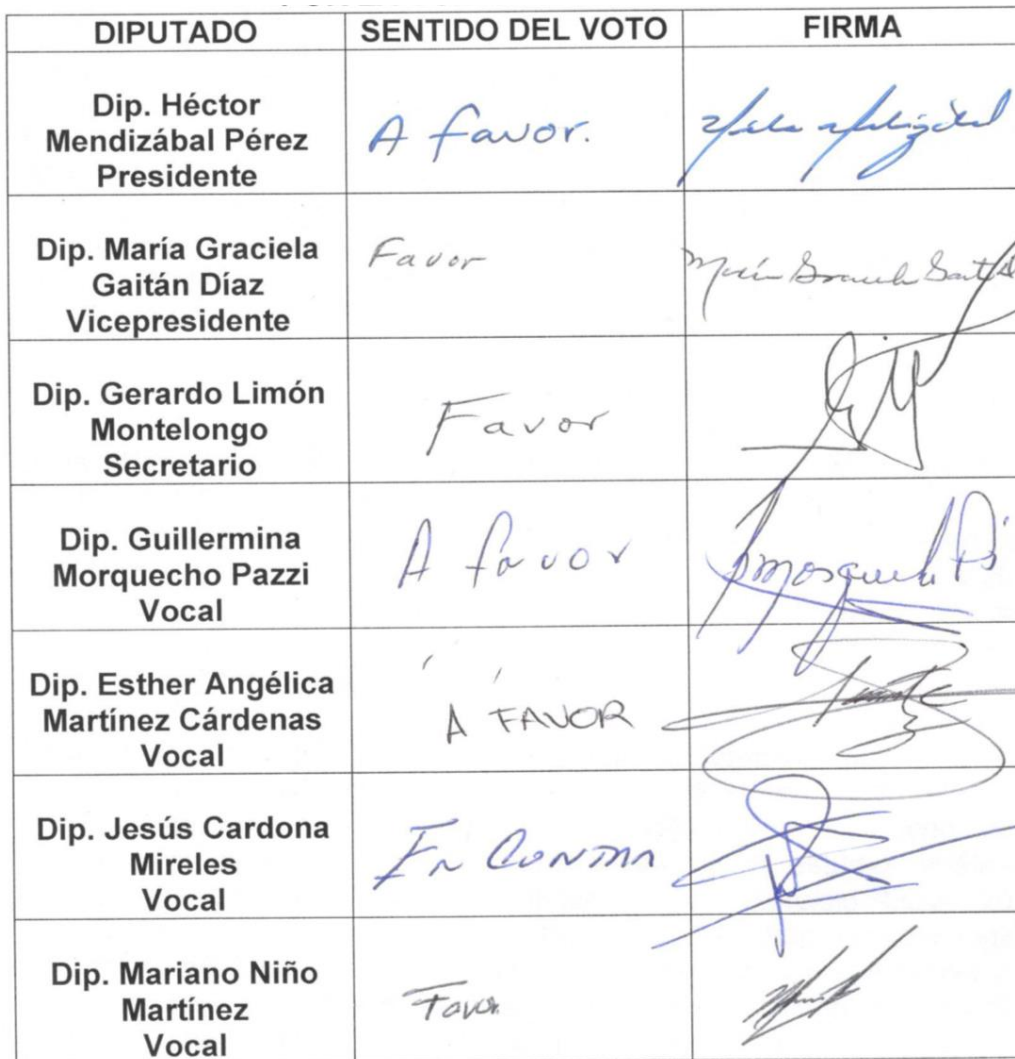 DIPUTADO SENTIDO DEL VOTO FIRMA
Dip. Héctor
Mendizábal Pérez
Presidente
A favor.
Dip. María Graciela
Gaitán Díaz
Vicepresidente
Favor
María Graciela Gaitán
Dip. Gerardo Limón
Montelongo
Secretario
Favor
Dip. Guillermina
Morquecho Pazzi
Vocal
A favor
Dip. Esther Angélica
Martínez Cárdenas
Vocal
A FAVOR
Dip. Jesús Cardona
Mireles
Vocal
En CONTRA
Dip. Mariano Niño
Martínez
Vocal
Favor